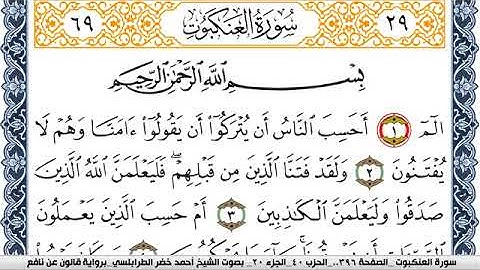 ٢٩ سُورَةُ العَنكَبُوت ٦٩
بِسْمِ اللَّهِ الرَّحْمَٰنِ الرَّحِيمِ
أَلَمِّ ١ أَحَسِبَ النَّاسُ أَن يُتْرَكُوٓا۟ أَن يَقُولُوٓا۟ ءَامَنَّا وَهُمْ لَا
يُفْتَنُونَ ٢ وَلَقَدْ فَتَنَّا الَّذِينَ مِن قَبْلِهِمْ فَلَيَعْلَمَنَّ اللَّهُ الَّذِينَ
صَدَقُوا۟ وَلَيَعْلَمَنَّ الْكَٰذِبِينَ ٣ أَمْ حَسِبَ الَّذِينَ يَعْمَلُونَ
سورة العنكبوت _ الصفحة ٣٩٦.. الحزب ٤٠_ الجزء ٢٠_ بصوت الشيخ أحمد خضر الطرابلسي _برواية قالون عن نافع